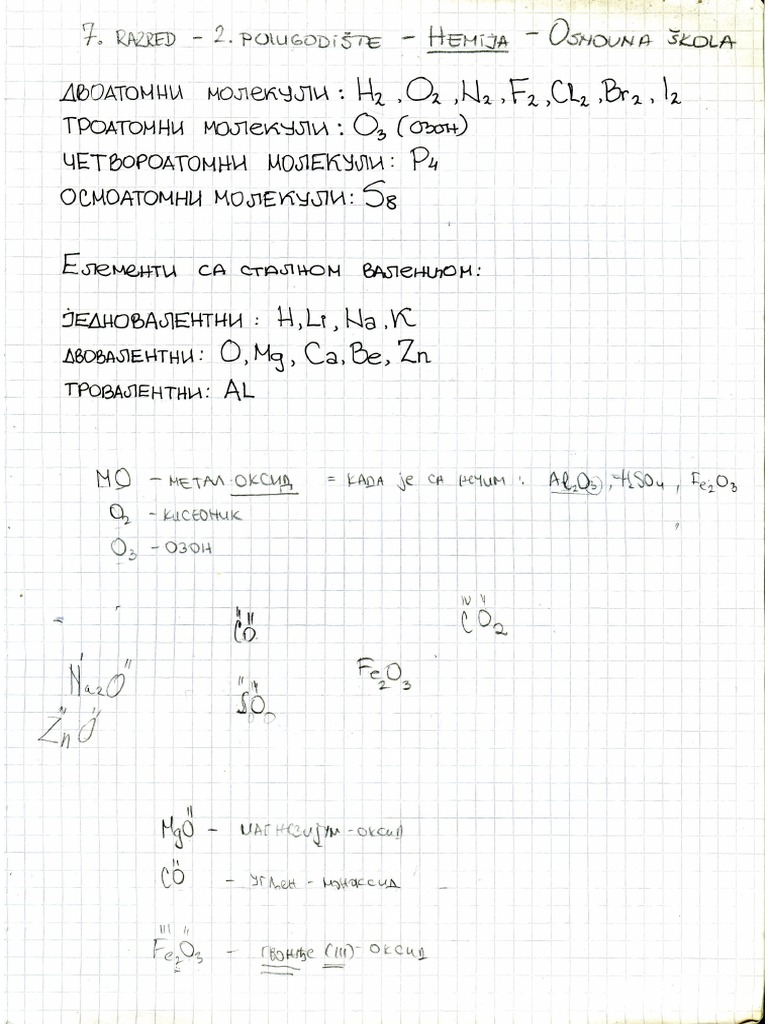 7. RAZRED - 2. POLUGODIŠTE - HEMIJA - OSNOVNA ŠKOLA
ДВОАТОМНИ МОЛЕКУЛИ: H₂, O₂, N₂, F₂, CL₂, Br₂, I₂
ТРОАТОМНИ МОЛЕКУЛИ: O₃ (ОЗОН)
ЧЕТВОРОАТОМНИ МОЛЕКУЛИ: P₄
ОСМОАТОМНИ МОЛЕКУЛИ: S₈
ЕЛЕМЕНТИ СА СТАЛНОМ ВАЛЕНЦОМ:
ЈЕДНОВАЛЕНТНИ: H, Li, Na, K
ДВОВАЛЕНТНИ: O, Mg, Ca, Be, Zn
ТРОВАЛЕНТНИ: AL
MO - МЕТАЛ ОКСИД = КАДА ЈЕ СА НЕЧИМ: Al₂O₃, H₂SO₄, Fe₂O₃
O₂ - КИСЕОНИК
O₃ - ОЗОН
IV II
CO₂
II II
CO
Fe₂O₃
I II
Na₂O
SO
II II
ZnO
II
MgO - МАГНЕЗИЈУМ-ОКСИД
CO - УГЉЕН-МОНОКСИД
III II
Fe₂O₃ - ГВОЖЂЕ (III)-ОКСИД